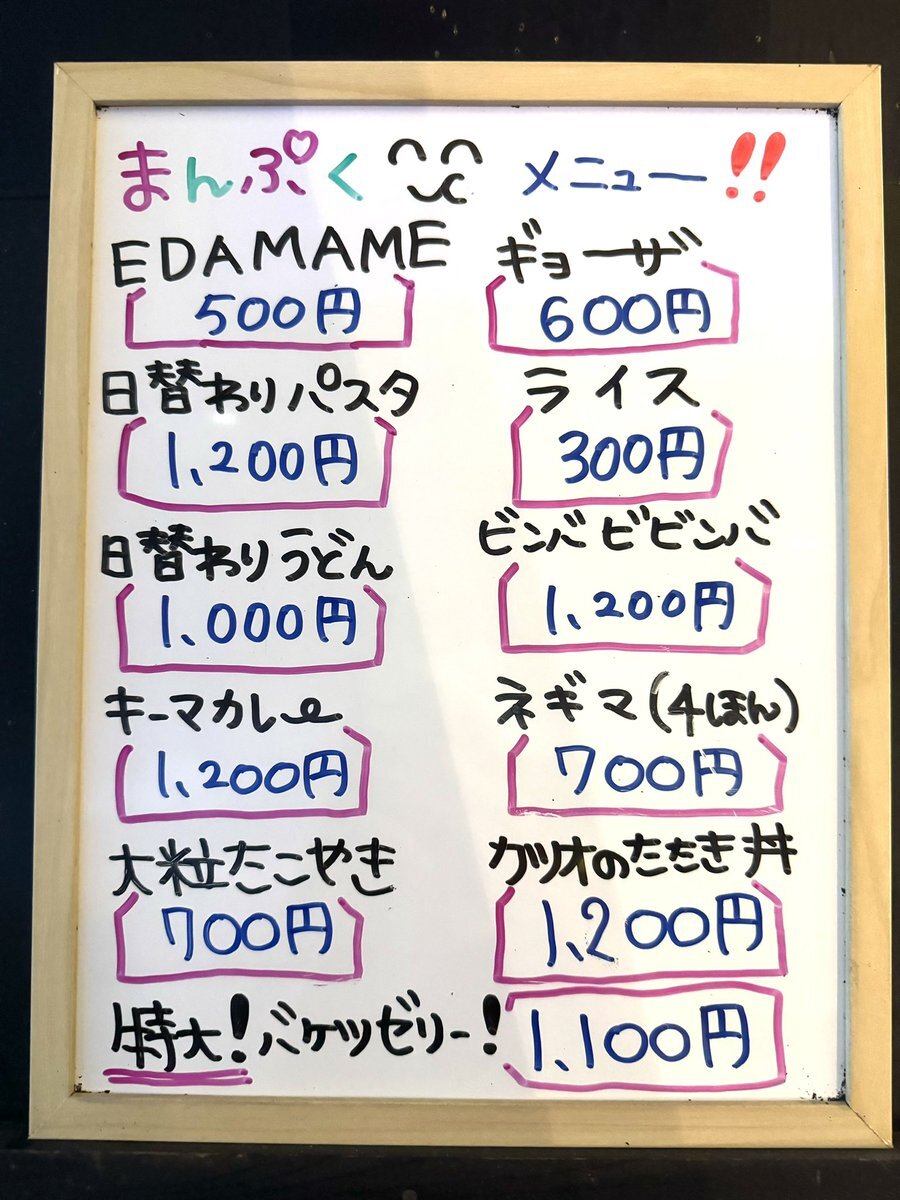 まんぷく メニュー!!
EDAMAME
500円
日替わりパスタ
1,200円
日替わりうどん
1,000円
キーマカレー
1,200円
大粒たこやき
700円
ギョーザ
600円
ライス
300円
ビンバビビンバ
1,200円
ネギマ(4ほん)
700円
カツオのたたき丼
1,200円
特大!バケツゼリー!
1,100円